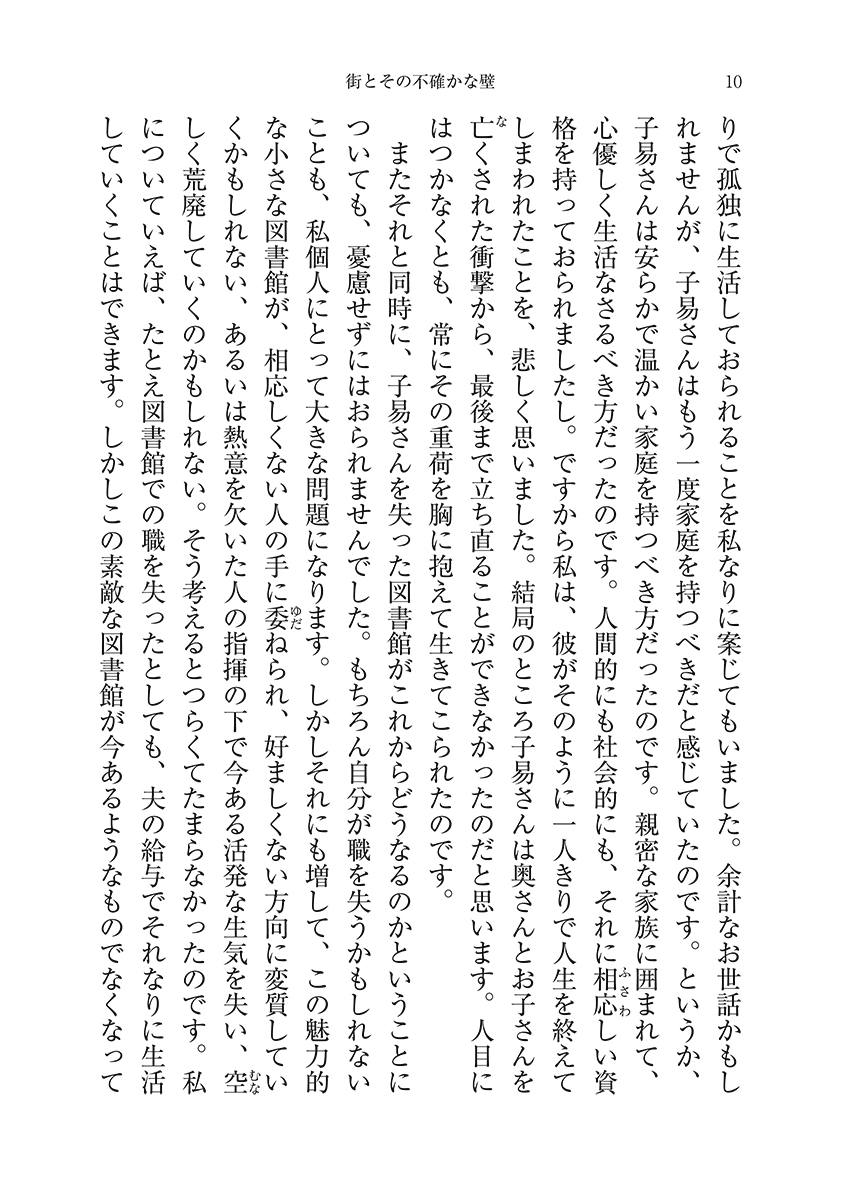 街とその不確かな壁
10
りで孤独に生活しておられることを私なりに案じてもいました。余計なお世話かもし
れませんが、子易さんはもう一度家庭を持つべきだと感じていたのです。というか、
子易さんは安らかで温かい家庭を持つべき方だったのです。親密な家族に囲まれて、
心優しく生活なさるべき方だったのです。人間的にも社会的にも、それに相応しい資
ふさわ
格を持っておられましたし。ですから私は、彼がそのように一人きりで人生を終えて
しまわれたことを、悲しく思いました。結局のところ子易さんは奥さんとお子さんを
亡くされた衝撃から、最後まで立ち直ることができなかったのだと思います。人目に
な
はつかなくとも、常にその重荷を胸に抱えて生きてこられたのです。
またそれと同時に、子易さんを失った図書館がこれからどうなるのかということに
ついても、憂慮せずにはおられませんでした。もちろん自分が職を失うかもしれない
ことも、私個人にとって大きな問題になります。しかしそれにも増して、この魅力的
な小さな図書館が、相応しくない人の手に委ねられ、好ましくない方向に変質してい
ゆだ
くかもしれない、あるいは熱意を欠いた人の指揮の下で今ある活発な生気を失い、空
むな
しく荒廃していくのかもしれない。そう考えるとつらくてたまらなかったのです。私
についていえば、たとえ図書館での職を失ったとしても、夫の給与でそれなりに生活
していくことはできます。しかしこの素敵な図書館が今あるようなものでなくなって